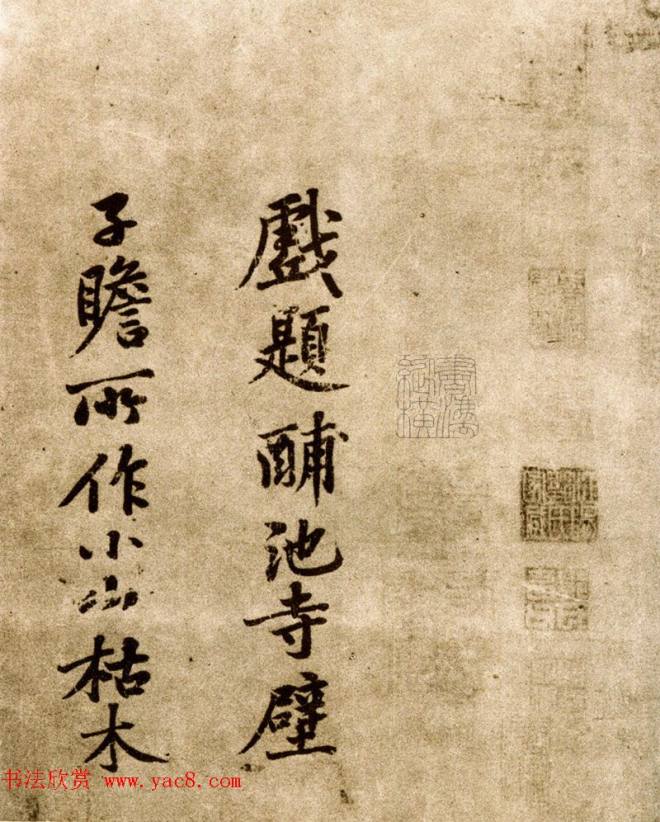 戲題酺池寺壁
子瞻所作小山枯木
書法縱橫
书法欣赏 www.yac8.com